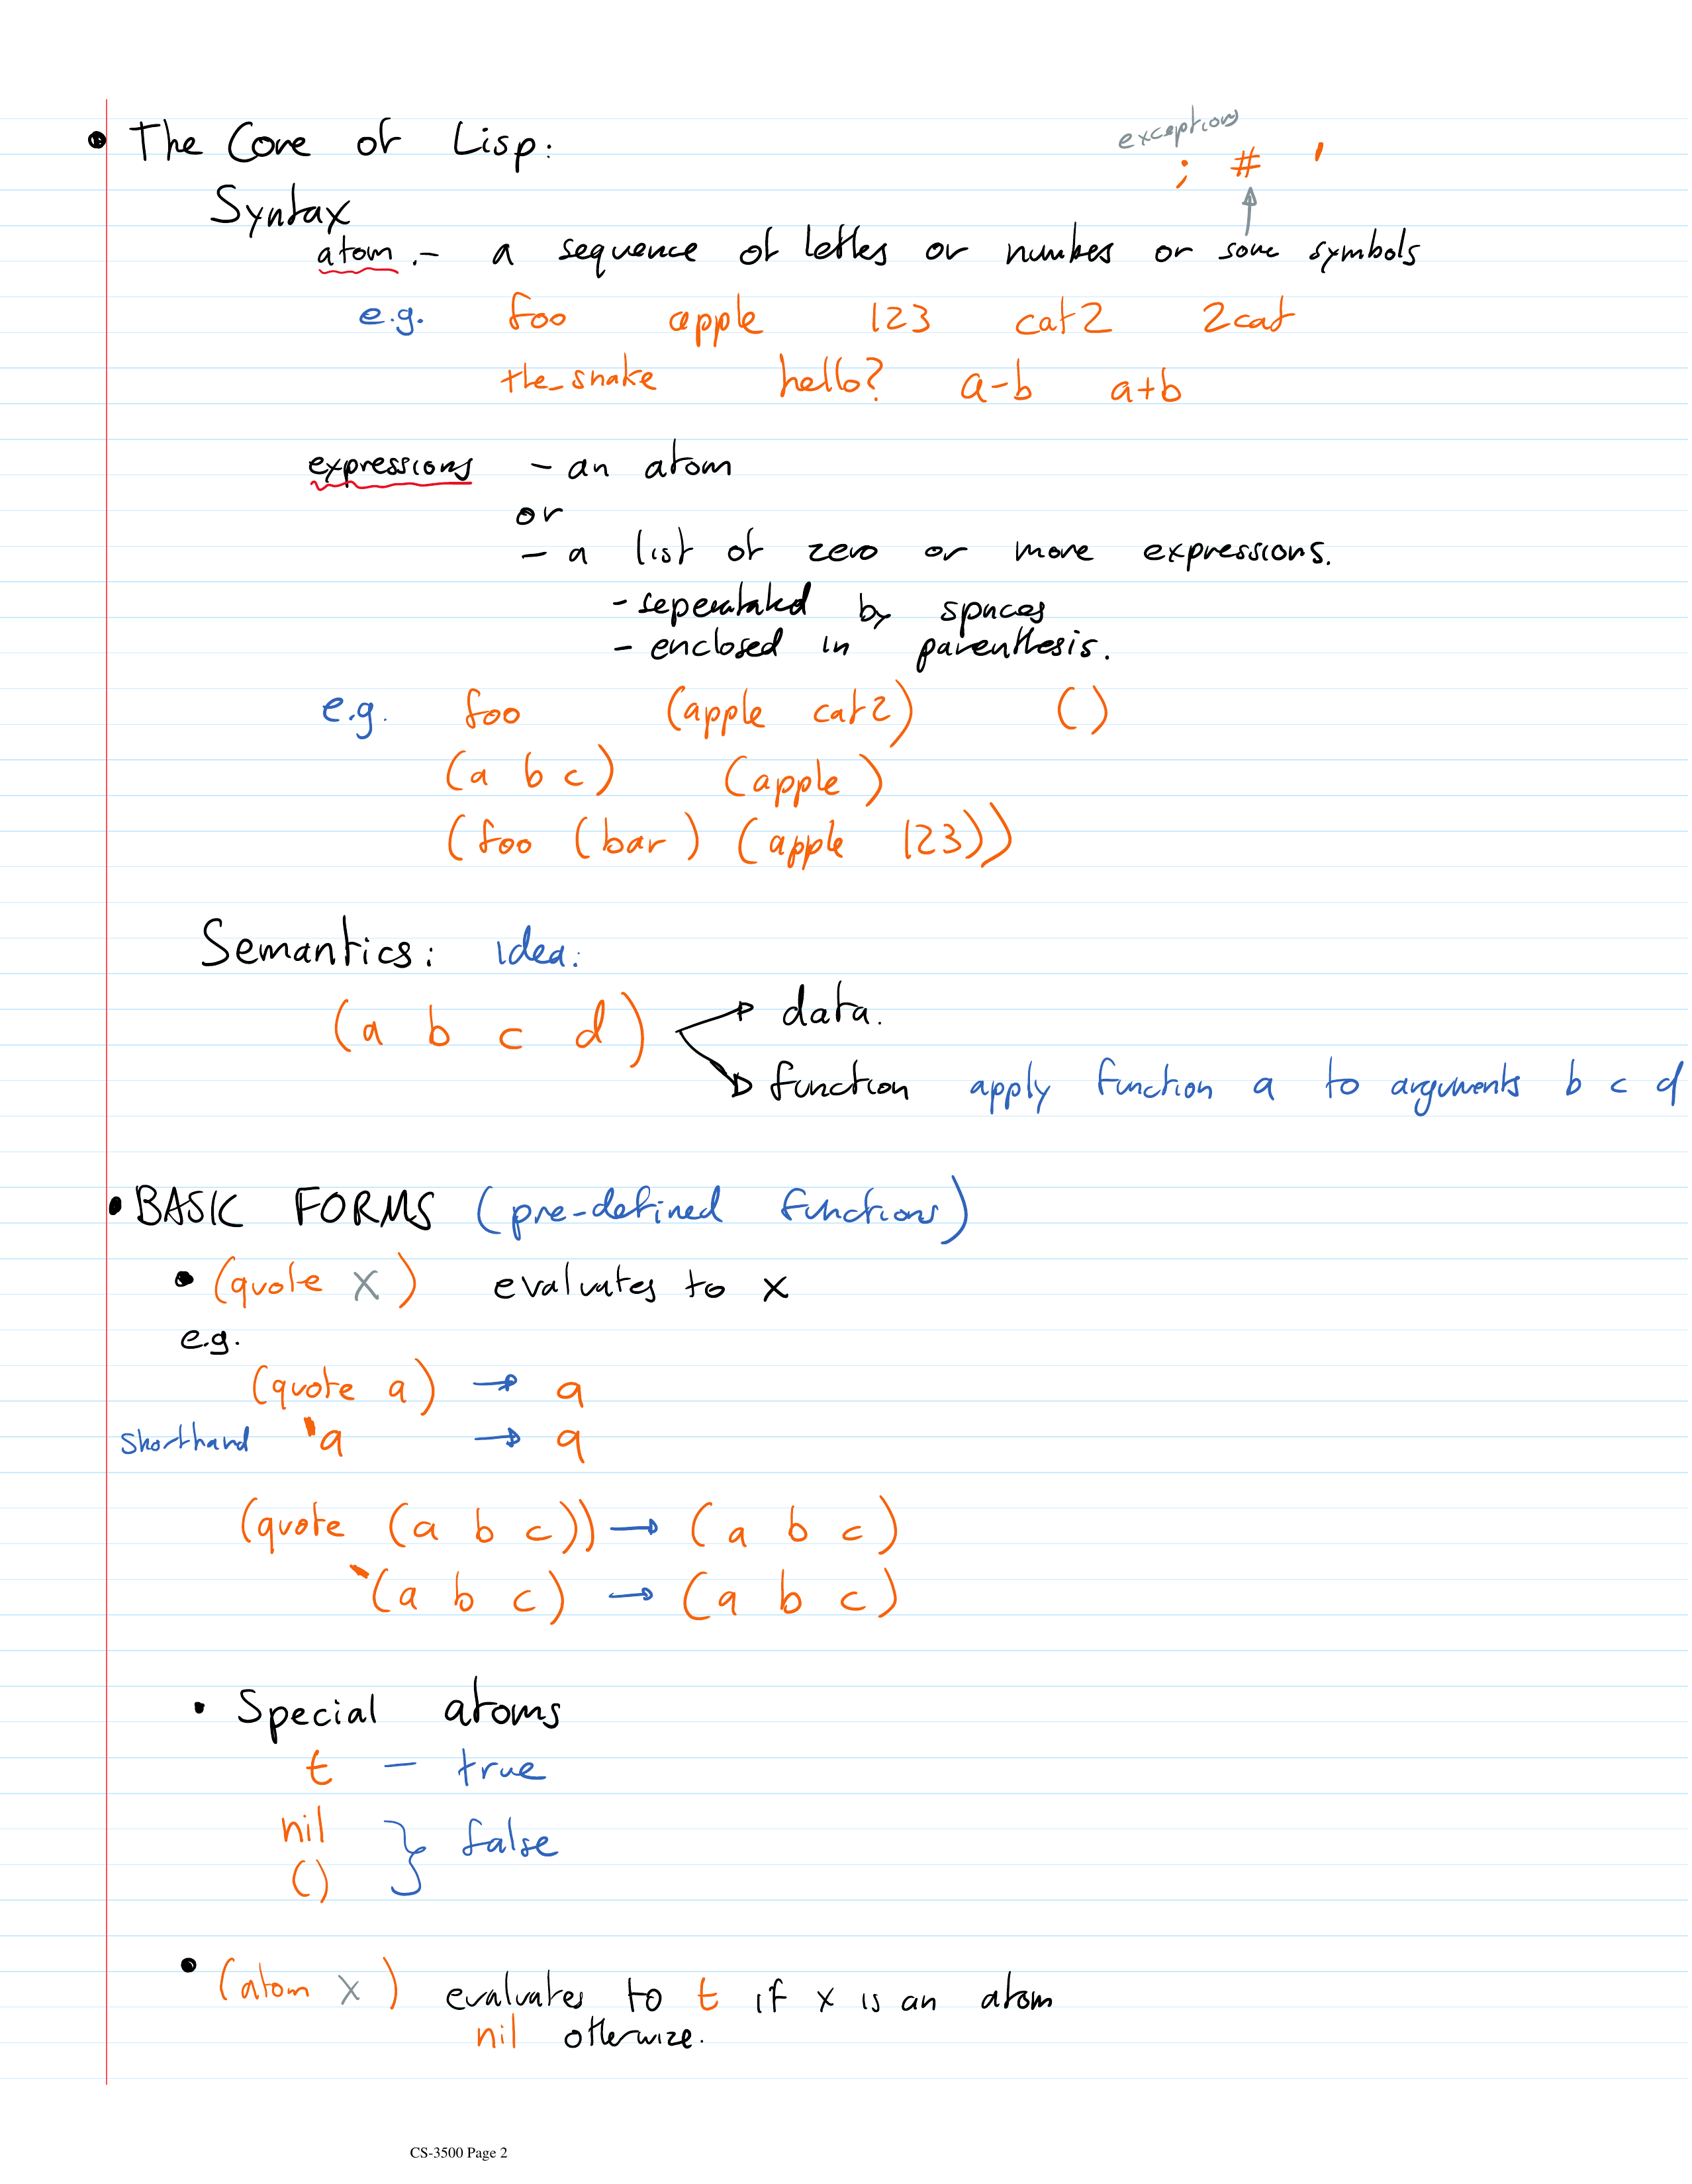 exceptions
• The Core of Lisp:
; # '
Syntax
atom :- a sequence of letters or numbers or some symbols
e.g. foo apple 123 cat2 2cat
the_snake hello? a-b a+b
expressions - an atom
or
- a list of zero or more expressions.
- seperatated by spaces
- enclosed in parenthesis.
e.g. foo (apple cat2) ()
(a b c) (apple)
(foo (bar) (apple 123))
Semantics: idea:
(a b c d) → data.
→ function apply function a to arguments b c d
• BASIC FORMS (pre-defined functions)
• (quote x) evaluates to x
e.g.
(quote a) → a
shorthand 'a → a
(quote (a b c)) → (a b c)
'(a b c) → (a b c)
• Special atoms
t - true
nil } false
()
• (atom x) evaluates to t if x is an atom
nil otherwize.
CS-3500 Page 2